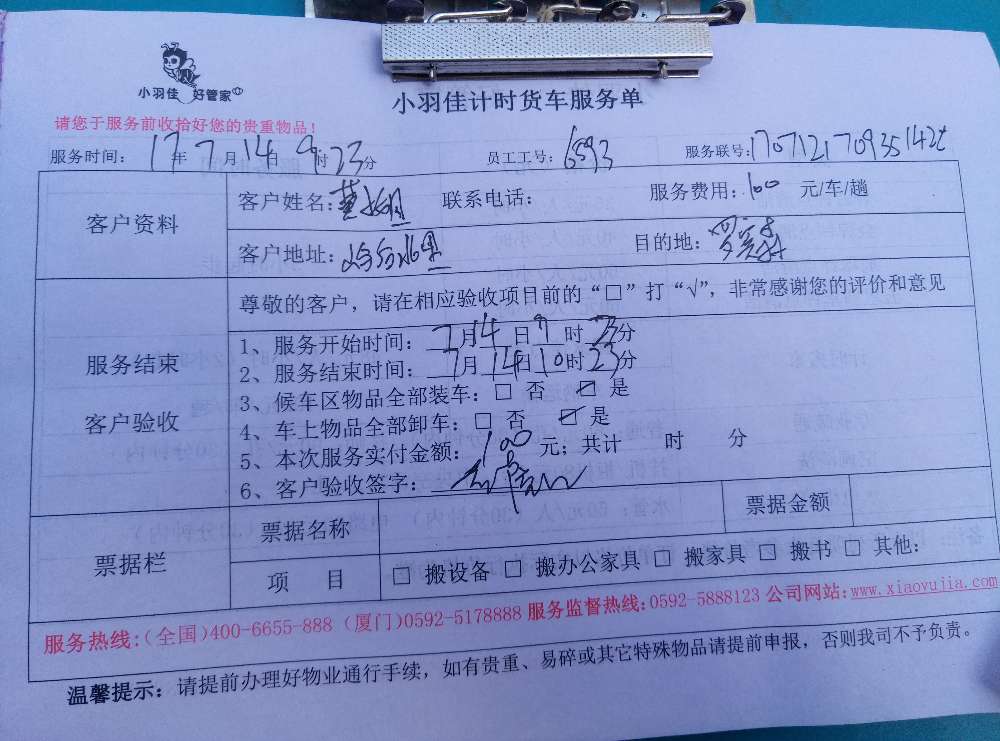 小羽佳 好管家
小羽佳计时货车服务单
请您于服务前收拾好您的贵重物品!
服务时间: 17年7月14日9时23分 员工工号: 6593 服务联号:
客户资料
客户姓名: 联系电话: 服务费用: 100 元/车/趟
客户地址: 目的地:
尊敬的客户,请在相应验收项目前的“□”打“√”,非常感谢您的评价和意见
服务结束
客户验收
1、服务开始时间: 7月14日9时23分
2、服务结束时间: 7月14日10时23分
3、候车区物品全部装车: □ 否 ☑ 是
4、车上物品全部卸车: □ 否 ☑ 是
5、本次服务实付金额: 100 元; 共计 时 分
6、客户验收签字:
票据栏
票据名称 票据金额
项 目 □ 搬设备 □ 搬办公家具 □ 搬家具 □ 搬书 □ 其他:
服务热线:(全国)400-6655-888 (厦门)0592-5178888 服务监督热线:0592-5888123 公司网站:www.xiaoyujia.com
温馨提示: 请提前办理好物业通行手续,如有贵重、易碎或其它特殊物品请提前申报,否则我司不予负责。